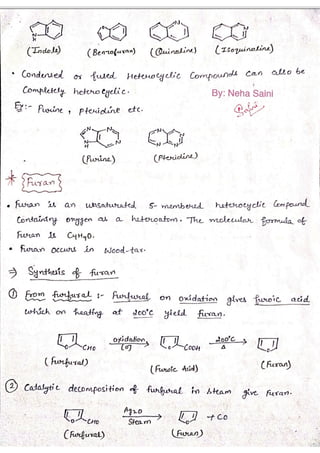 (Indole) (Benzofuran) (Quinoline) (Isoquinoline)
• Condensed or fused Heterocyclic Compounds can also be
Completely heterocyclic.
By: Neha Saini
Ex:- Purine, pteridine etc.
(Purine) (Pteridine)
* Furan
• Furan is an unsaturated 5-membered heterocyclic compound
Containing oxygen as a heteroatom. The molecular formula of
Furan is C4H4O.
• Furan occurs in wood-tar.
⇒ Synthesis of furan
① From furfural :- Furfural on oxidation gives furoic acid
which on heating at 200°C yield furan.
CHO oxidation [O] COOH 200°C Δ
(Furfural) (Furoic Acid) (Furan)
② Catalytic decomposition of furfural in steam give Furan.
CHO Ag2O Steam + CO
(Furfural) (Furan)